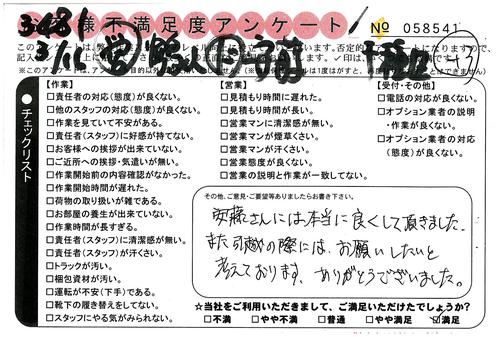 お客様不満足度アンケート
№ 058541
3481
3/16
【作業】
□責任者の対応(態度)が良くない。
□他のスタッフの対応(態度)が良くない。
□作業を見ていて不安がある。
□責任者(スタッフ)に好感が持てない。
□お客様への挨拶が出来ていない。
□ご近所への挨拶・気遣いが無い。
□作業開始前の内容確認がなかった。
□作業開始時間が遅れた。
□荷物の取り扱いが雑である。
□お部屋の養生が出来ていない。
□作業時間が長すぎる。
□責任者(スタッフ)に清潔感が無い。
□責任者(スタッフ)が汗くさい。
□トラックが汚い。
□梱包資材が汚い。
□運転が不安(下手)である。
□靴下の履き替えをしてない。
□スタッフにやる気がみられない。
【営業】
□見積もり時間に遅れた。
□見積もり時間が長い。
□営業マンに清潔感が無い。
□営業マンが煙草くさい。
□営業マンが汗くさい。
□営業態度が良くない。
□営業の説明と作業が一致してない。
【受付・その他】
□電話の対応が良くない。
□オプション業者の説明
・作業が良くない。
□オプション業者の対応
(態度)が良くない。
●チェックリスト
その他、ご意見・ご要望等ありましたらお書き下さい。
安藤さんには本当に良くして頂きました。
また引越の際には、お願いしたいと
考えております。ありがとうございました。
☆当社をご利用いただきまして、ご満足いただけたでしょうか?
□不満 □やや不満 □普通 □やや満足 ☑満足